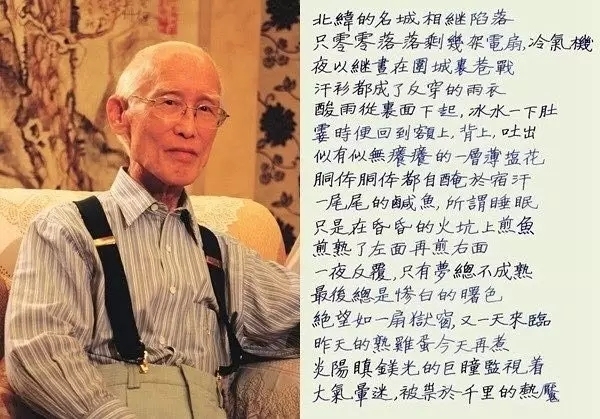 北緯的名城相繼陷落
只零零落落剩幾架電扇,冷氣機
夜以繼晝在圍城裏巷戰
汗衫都成了反穿的雨衣
酸雨從裏面下起,冰水一下肚
霎時便回到額上,背上,吐出
似有似無癢癢的一層薄塩花
胴体胴体都自醃於宿汗
一尾尾的鹹魚,所謂睡眠
只是在昏昏的火坑上煎魚
煎熟了左面再煎右面
一夜反覆,只有夢總不成熟
最後總是慘白的曙色
絕望如一扇獄窗,又一天來臨
昨天的熟雞蛋今天再煮
炎陽瞋鎂光的巨瞳監視着
大氣暈迷,被祟於千里的熱魘